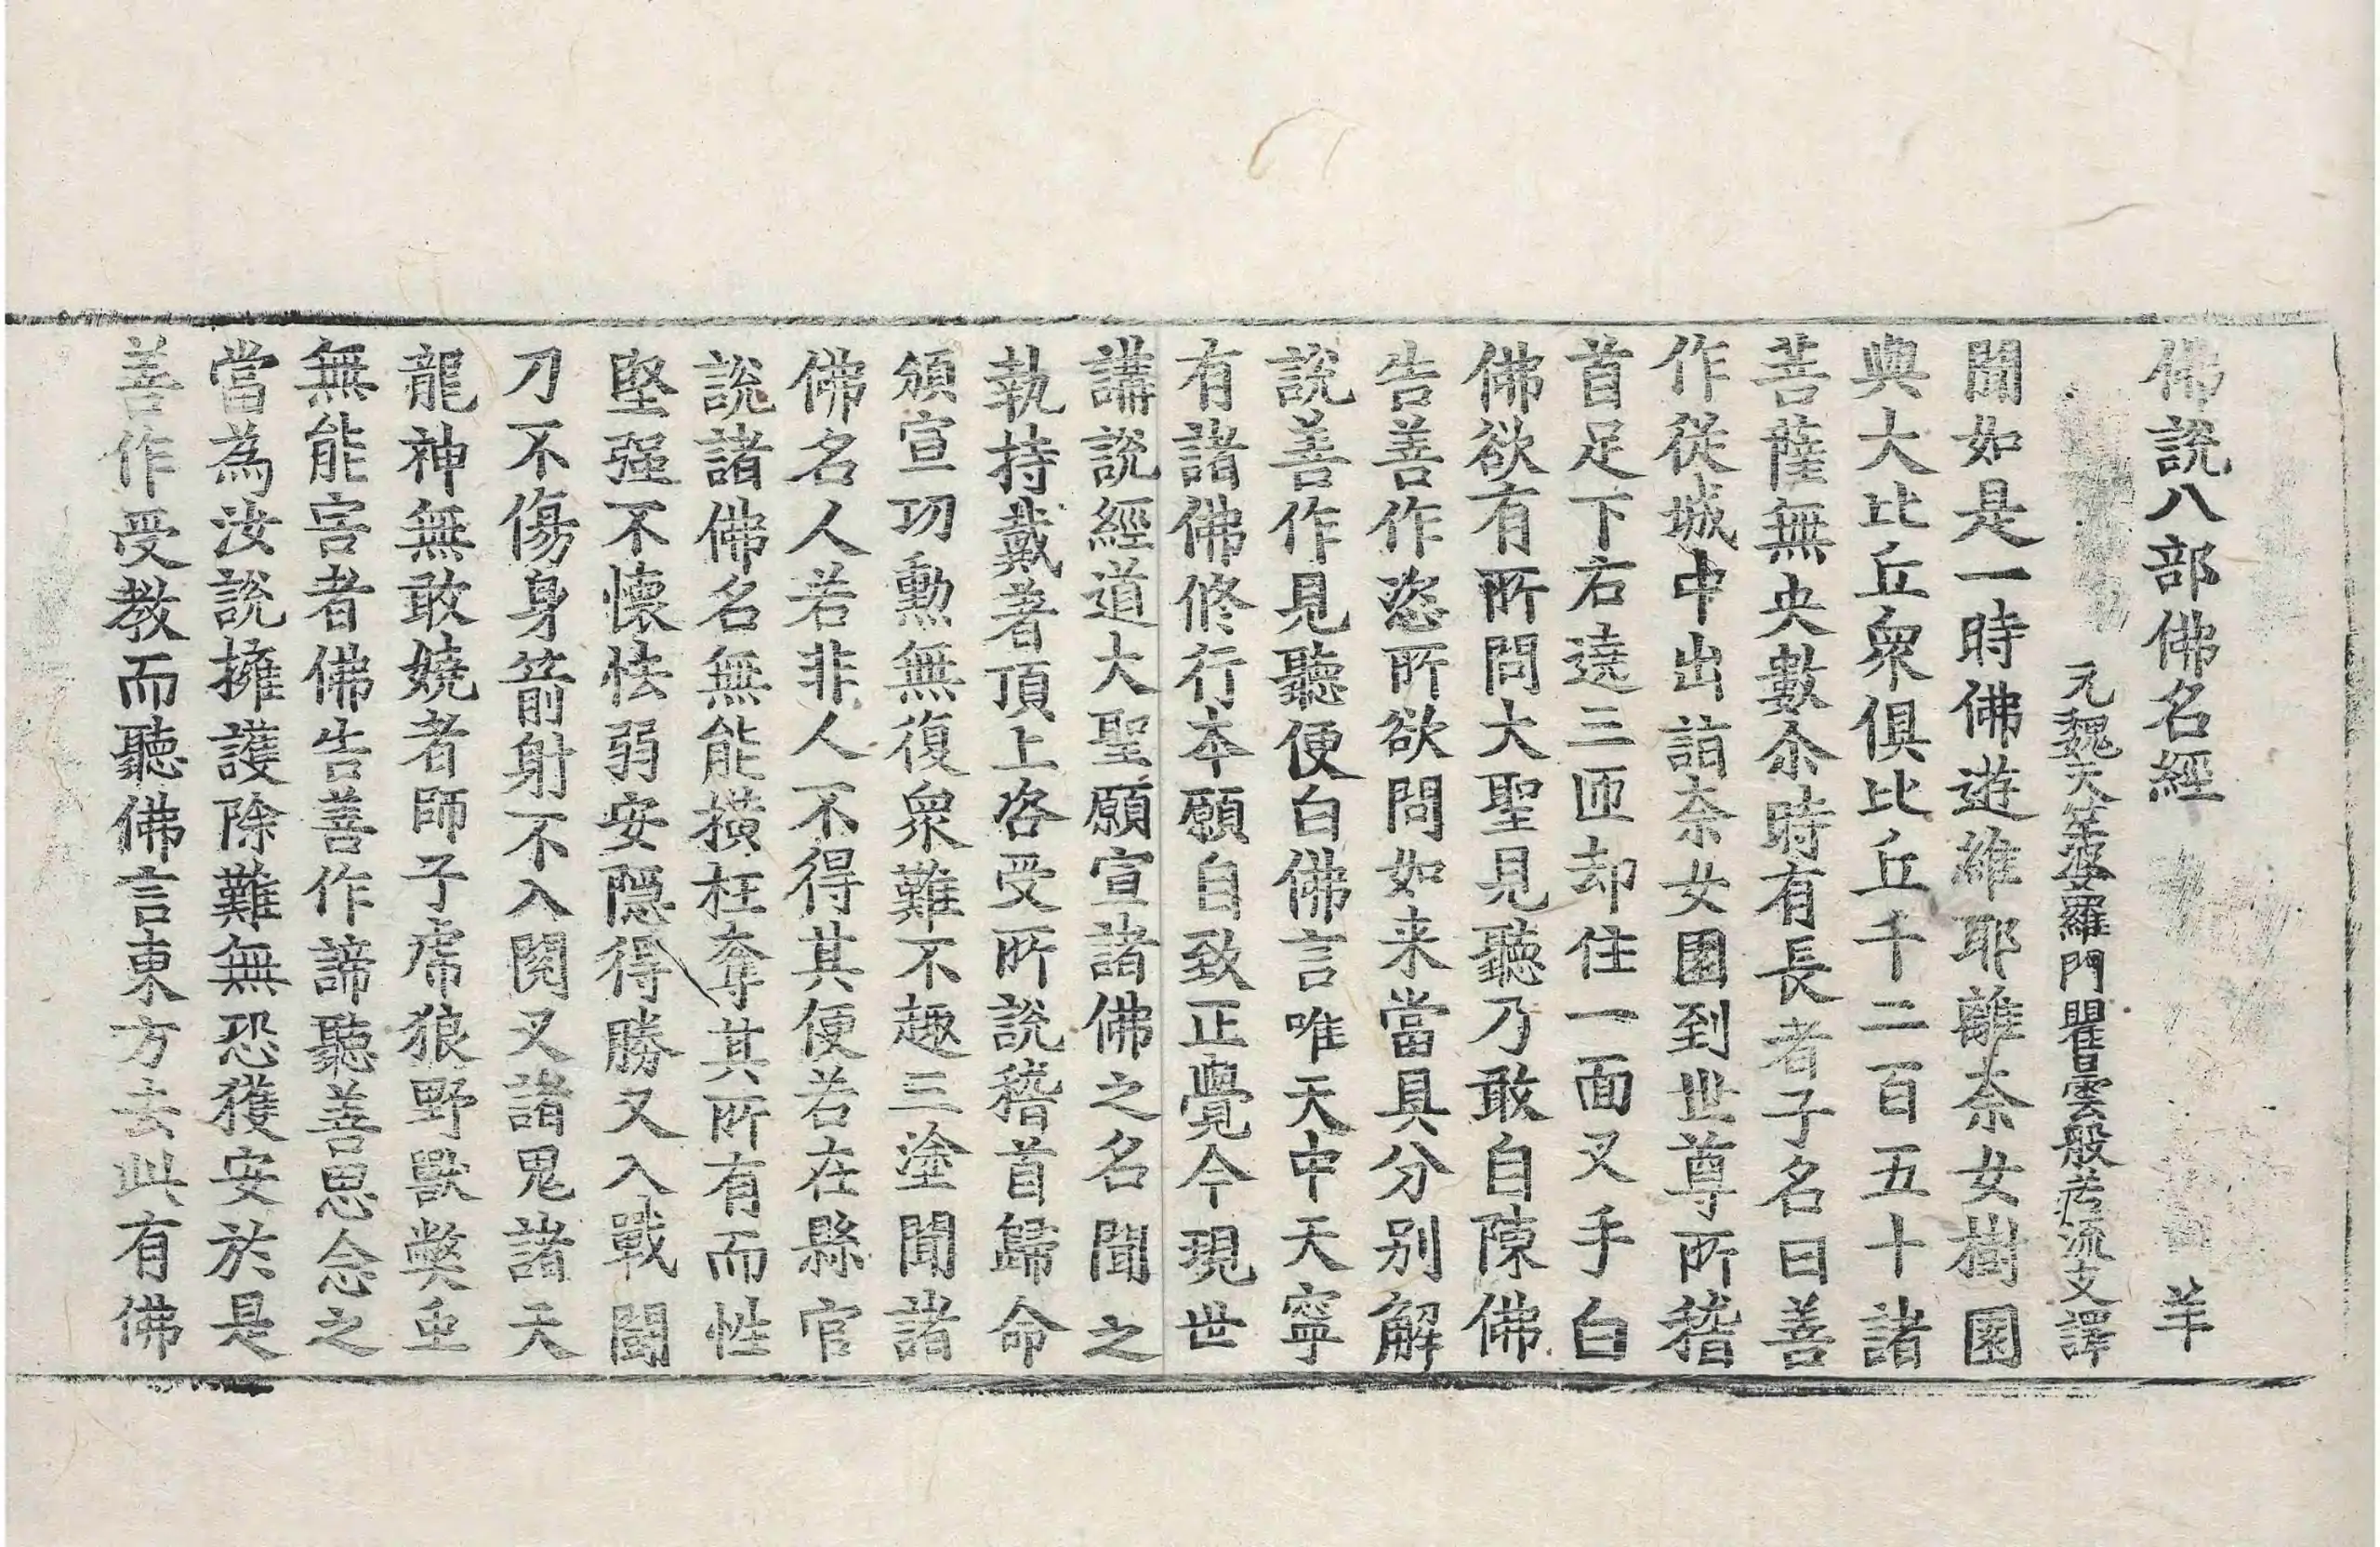 佛說八部佛名經 羊
元魏天竺婆羅門瞿曇般若流支譯
聞如是一時佛遊維耶離柰女樹園
與大比丘衆俱比丘千二百五十諸
菩薩無央數尒時有長者子名曰善
作從城中出詣柰女園到世尊所稽
首足下右遶三匝却住一面叉手白
佛欲有所問大聖見聽乃敢自陳佛
告善作恣所欲問如来當具分別解
說善作見聽便白佛言唯天中天寧
有諸佛修行本願自致正覺今現世
講說經道大聖願宣諸佛之名聞之
執持戴著頂上咨受所說稽首歸命
頒宣功勳無復衆難不趣三塗聞諸
佛名人若非人不得其便若在縣官
說諸佛名無能橫枉奪其所有而性
堅强不懷怯弱安隱得勝又入戰鬪
刀不傷身箭射不入閱叉諸鬼諸天
龍神無敢嬈者師子虎狼野獸獘虫
無能害者佛告善作諦聽善思念之
當為汝說擁護除難無恐獲安於是
善作受教而聽佛言東方去此有佛